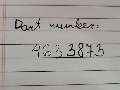 Dart number:
4633873